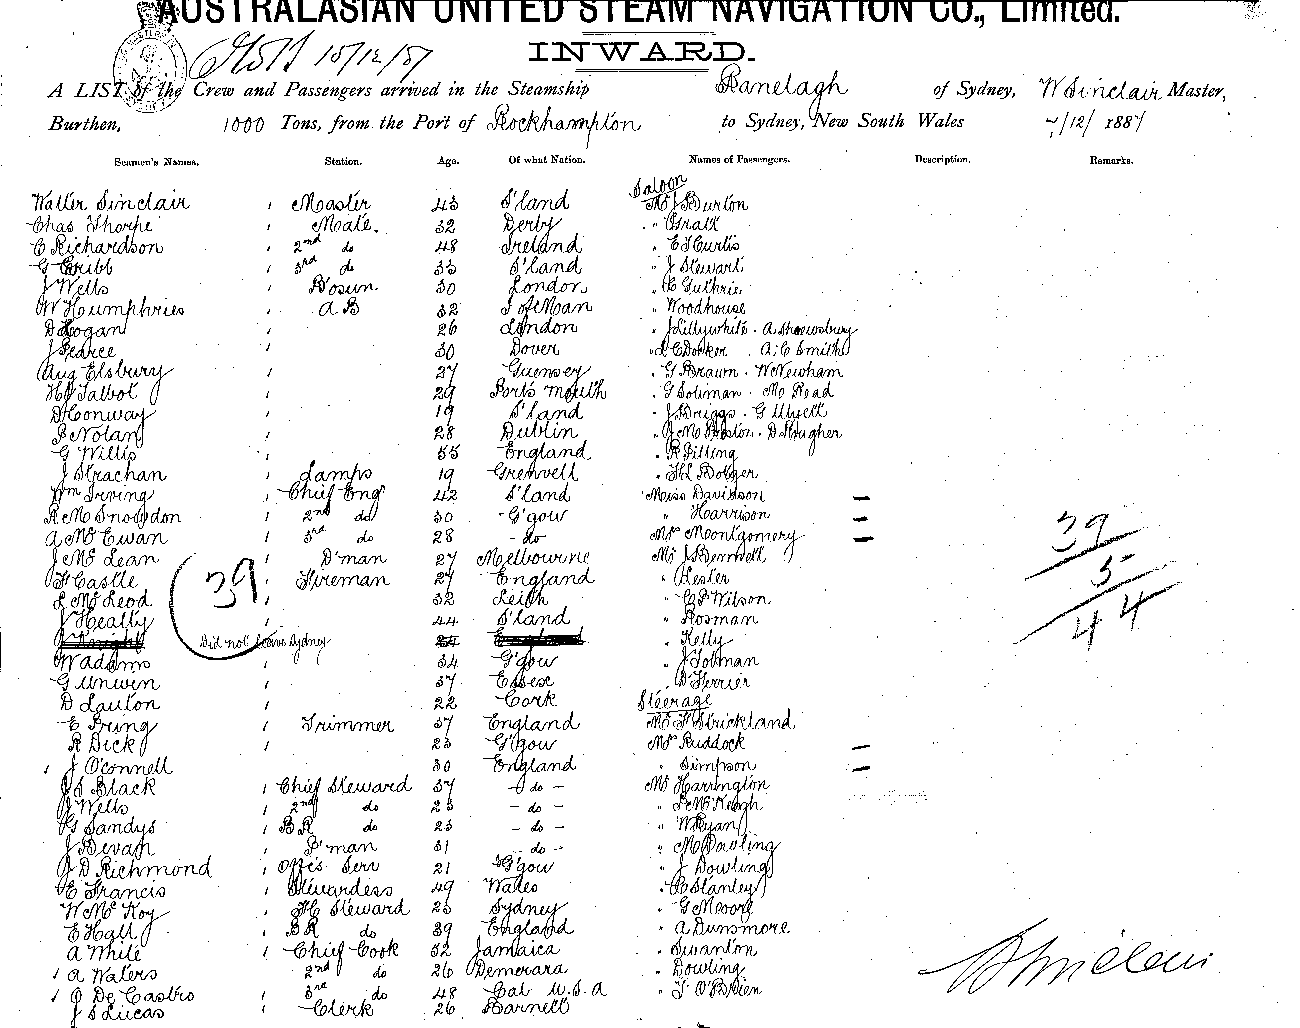 AUSTRALASIAN UNITED STEAM NAVIGATION CO., Limited.
INWARD.
15/12/87
A LIST of the Crew and Passengers arrived in the Steamship Ranelagh of Sydney, W Sinclair Master,
Burthen, 1000 Tons, from the Port of Rockhampton to Sydney, New South Wales 7/12/1887
Seamen's Names. Station. Age. Of what Nation. Names of Passengers. Description. Remarks.
Saloon
Walter Sinclair Master 43 S'land Mr J Burton
Chas Thorpe Mate. 32 Derby " Gratt
C Richardson 2nd do 48 Ireland " E T Curtis
G Gribb 3rd do 33 S'land " J Stewart
J Wells B'osun 30 London " C Guthrie
W Humphries A B 32 I of Man " Woodhouse
D Hogan 26 London " J Lillywhite . A Shrewsbury
J Pearce 30 Dover " L C Docker . A. C Smith
Aug Elsbury 27 Guensey " G Brawn . W Newham
H J Talbot 29 Ports mouth " G Soliman . Mc Read
D Conway 19 S'land " J Briggs . G Ulyett
P Nolan 28 Dublin " J M Preston .
G Willis 55 England " R Pilling
J Strachan Lamps 19 Grenvell " H L Bolger
Wm Irving Chief Eng 42 S'land Miss Davidson –
R M Snowdon 2nd do 30 G'gow " Harrison –
A Mc Ewan 3rd do 28 - do Mrs Montgomery –
J Mc Lean D'man 27 Melbourne Mr J Bennett
F Castle Fireman 27 England " Hester
L Mc Leod 32 Leith " C P Wilson
J Heally 44 S'land " Rosman
J Knight Did not leave Sydney 24 England " Kelly
W Addms 34 G'gow " J Tolman
G Unwin 37 Essex " D Ferrier
D Lauton 22 Cork Steerage
E Bring Trimmer 37 England Mr F Strickland
R Dick 23 G'gow Mrs Ruddock –
J O'Connell 30 England " Simpson –
J S Black Chief Steward 37 - do - Mr Harrington
J Wells 2nd do 23 - do - " L Mc Keogh
G Sandys B R do 23 - do - " W Ryan
J Bevan P'man 31 - do - " M Dowling
J D Richmond Offrs Serv 21 G'gow " J Dowling
E Francis Stewardess 49 Wales " C Stanley
W Mc Koy F C Steward 23 Sydney " G Moore
E Hall B R do 39 England " A Dunsmore
A White Chief Cook 32 Jamaica " Swanton
A Waters 2nd do 26 Demerara " Dowling
De Castro 3rd do 48 Cal U. S. A " T O'Brien
J S Lucas Clerk 26 Barnett
39
39
5
44
W Sinclair